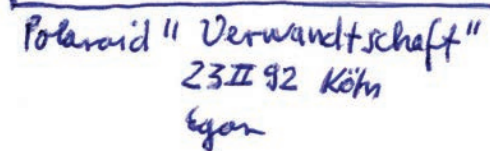 Polaroid "Verwandtschaft"
23 II 92 Köln
Egon